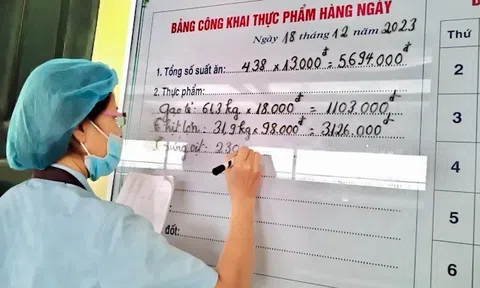 BẢNG CÔNG KHAI THỰC PHẨM HÀNG NGÀY
Ngày 18 tháng 12 năm 2023
1. Tổng số suất ăn: 438 x 13000đ = 5.694.000đ
2. Thực phẩm:
gạo tẻ: 61,3 kg x 18.000đ = 1103.000đ
Thịt lợn: 31,9 kg x 98.000đ = 3126.000đ
Trứng vịt: 230
đốt:
Thứ
2
3
4
5
6